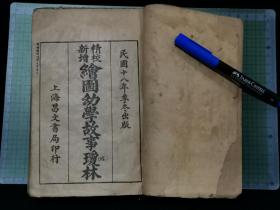 民國十八年季冬出版
精校新增
繪圖幼學故事瓊林
上海昌文書局印行